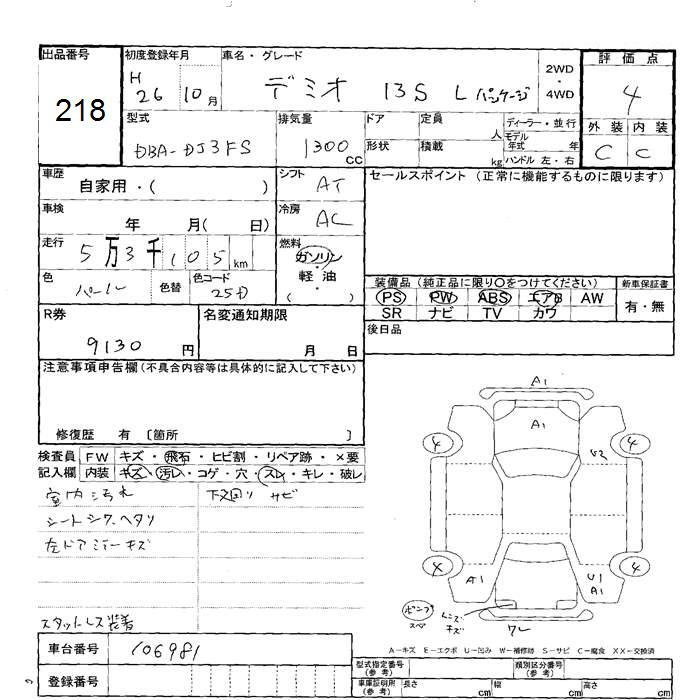 出品番号 218
初度登録年月 H 26 10月
車名・グレード デミオ 13S L パッケージ
2WD・4WD
評価点 4
外装 内装
C C
型式 DBA-DJ3FS
排気量 1300 cc
ドア 定員 人
形状 積載 kg
ディーラー・並行
モデル年式 年
ハンドル 左・右
車歴 自家用・( )
シフト AT
セールスポイント (正常に機能するものに限ります)
車検 年 月( 日)
冷房 AC
走行 5万3千105km
燃料 ガソリン・軽油 ( )
色 パール 色替 色コード 25D
装備品 (純正品に限り○をつけてください) 新車保証書
PS PW ABS エアB AW 有・無
SR ナビ TV カワ
後日品
R券 9130 円
名変通知期限 月 日
注意事項申告欄 (不具合内容等は具体的に記入して下さい)
修復歴 有 〔箇所 〕
検査員記入欄
FW キズ・飛石・ヒビ割・リペア跡・×要
内装 キズ・汚れ・コゲ・穴・スレ・キレ・破レ
室内汚れ 下廻り サビ
シートシワ.ヘタリ
左ドアミラーキズ
スタットレス装着
A1
A1
4 4
U2
4 4
A1 U1 A1
レンズキズ
ワレ
車台番号 106981
A−キズ E−エクボ U−凹み W−補修跡 S−サビ C−腐食 XX−交換済
登録番号
型式指定番号 (参考) 類別区分番号 (参考)
車庫証明用 (参考) 長さ cm 幅 cm 高さ cm